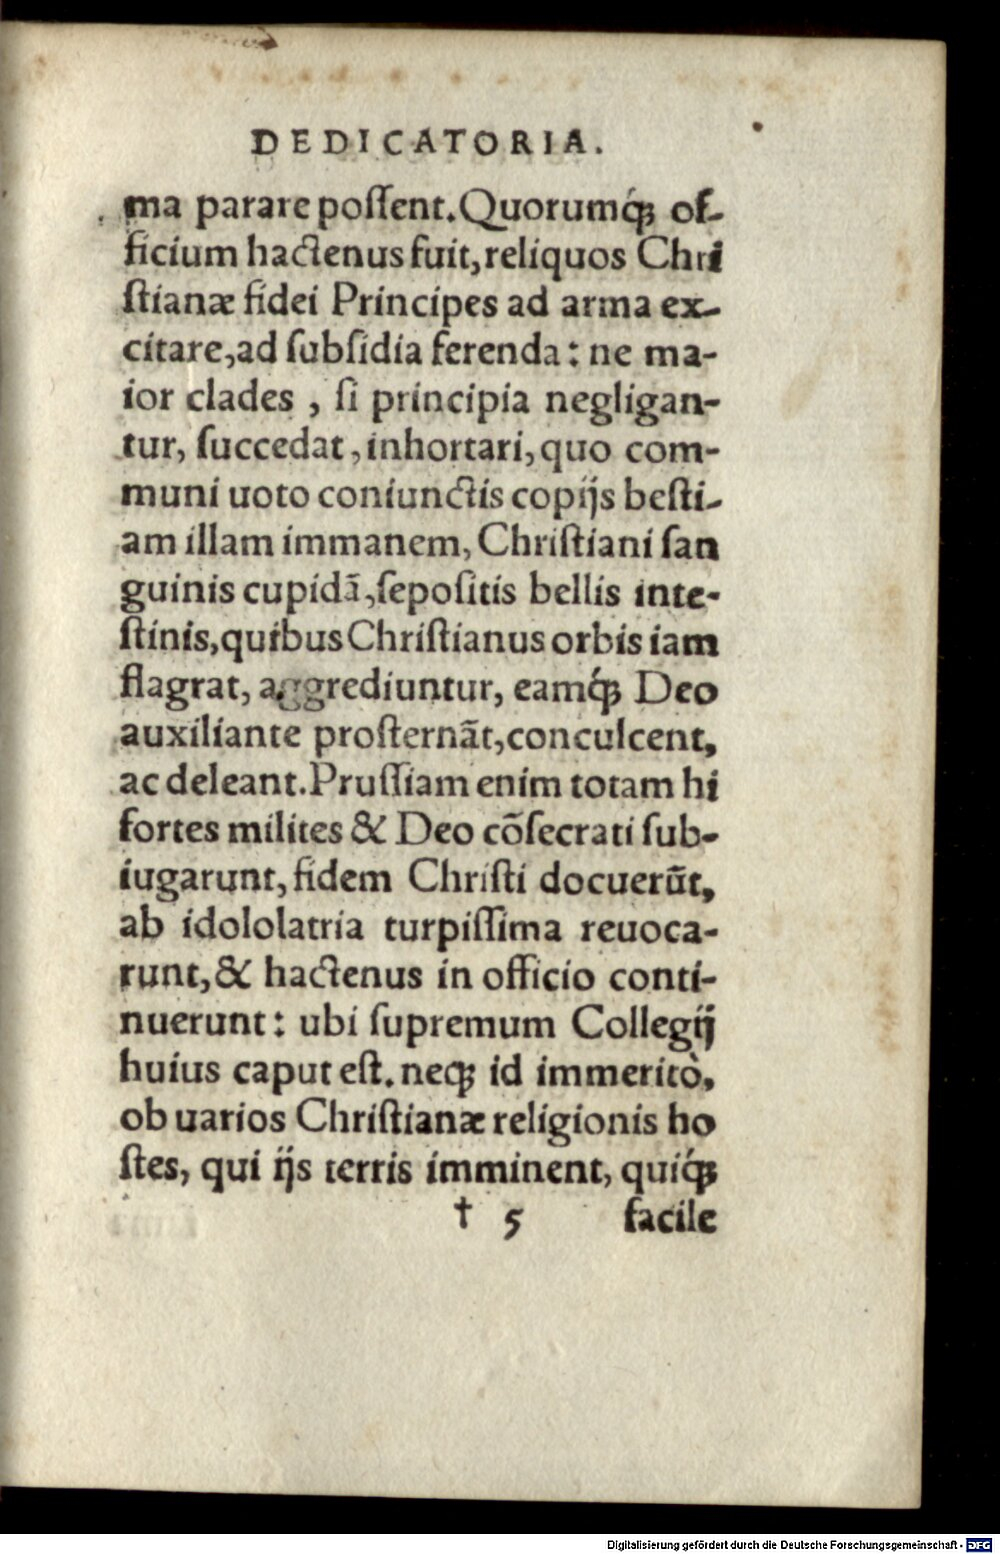 DEDICATORIA.
ma parare poſſent. Quorumq́ꝫ of-
ficium hactenus fuit, reliquos Chri
ſtianæ fidei Principes ad arma ex-
citare, ad ſubſidia ferenda: ne ma-
ior clades, ſi principia negligan-
tur, ſuccedat, inhortari, quo com-
muni uoto coniunctis copijs beſti-
am illam immanem, Chriſtiani ſan
guinis cupidā, ſepoſitis bellis inte-
ſtinis, quibus Chriſtianus orbis iam
flagrat, aggrediuntur, eamq́ꝫ Deo
auxiliante proſternāt, conculcent,
ac deleant. Pruſſiam enim totam hi
fortes milites & Deo cōſecrati ſub-
iugarunt, fidem Chriſti docuerūt,
ab idololatria turpiſſima reuoca-
runt, & hactenus in officio conti-
nuerunt: ubi ſupremum Collegij
huius caput eſt. neqꝫ id immeritò,
ob uarios Chriſtianæ religionis ho
ſtes, qui ijs terris imminent, quiq́ꝫ
† 5 facile
Digitalisierung gefördert durch die Deutsche Forschungsgemeinschaft - DFG